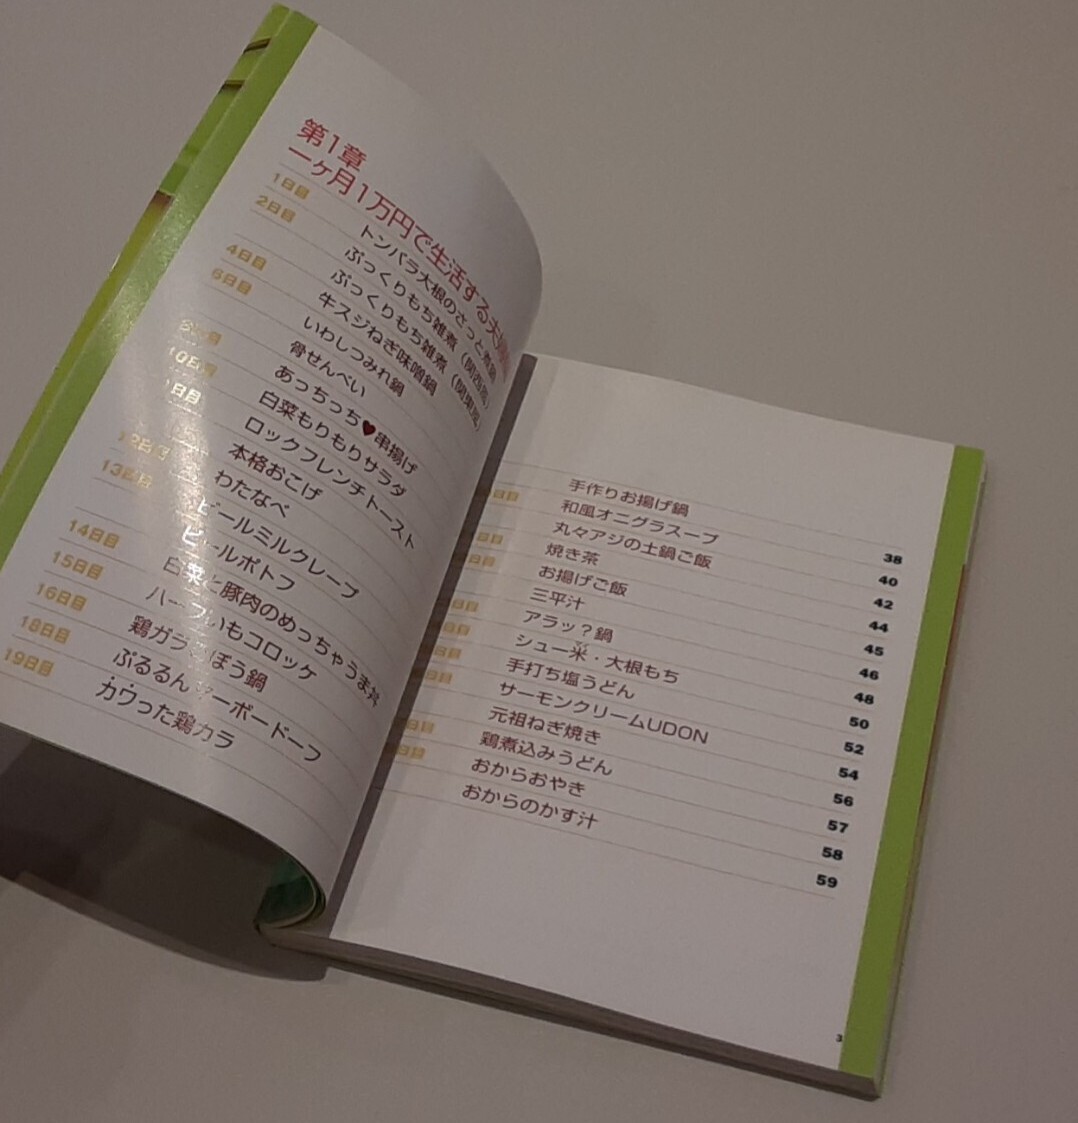 第1章
一ヶ月1万円で生活する夫
1日目 トンバラ大根のさっと煮鍋
2日目 ぷっくりもち雑煮（関西風）
ぷっくりもち雑煮（関東風）
4日目 牛スジねぎ味噌鍋
6日目 いわしつみれ鍋
骨せんべい
日目 あっちっち♥串揚げ
10日目 白菜もりもりサラダ
日目 ロックフレンチトースト
本格おこげ
12日目 わたなべ
13日目 ビールミルクレープ
ビールポトフ
14日目 白菜と豚肉のめっちゃうま
15日目 ハーフいもコロッケ
16日目 鶏ガラごぼう鍋
18日目 ぷるるんマーボードーフ
19日目 カワった鶏ガラ
日目 手作りお揚げ鍋 38
和風オニグラスープ 40
日目 丸々アジの土鍋ご飯 42
日目 焼き茶 44
お揚げご飯 45
日目 三平汁 46
日目 アラッ？鍋 48
日目 シュー米・大根もち 50
日目 手打ち塩うどん 52
サーモンクリームUDON 54
日目 元祖ねぎ焼き 56
日目 鶏煮込みうどん 57
おからおやき 58
おからのかす汁 59
3